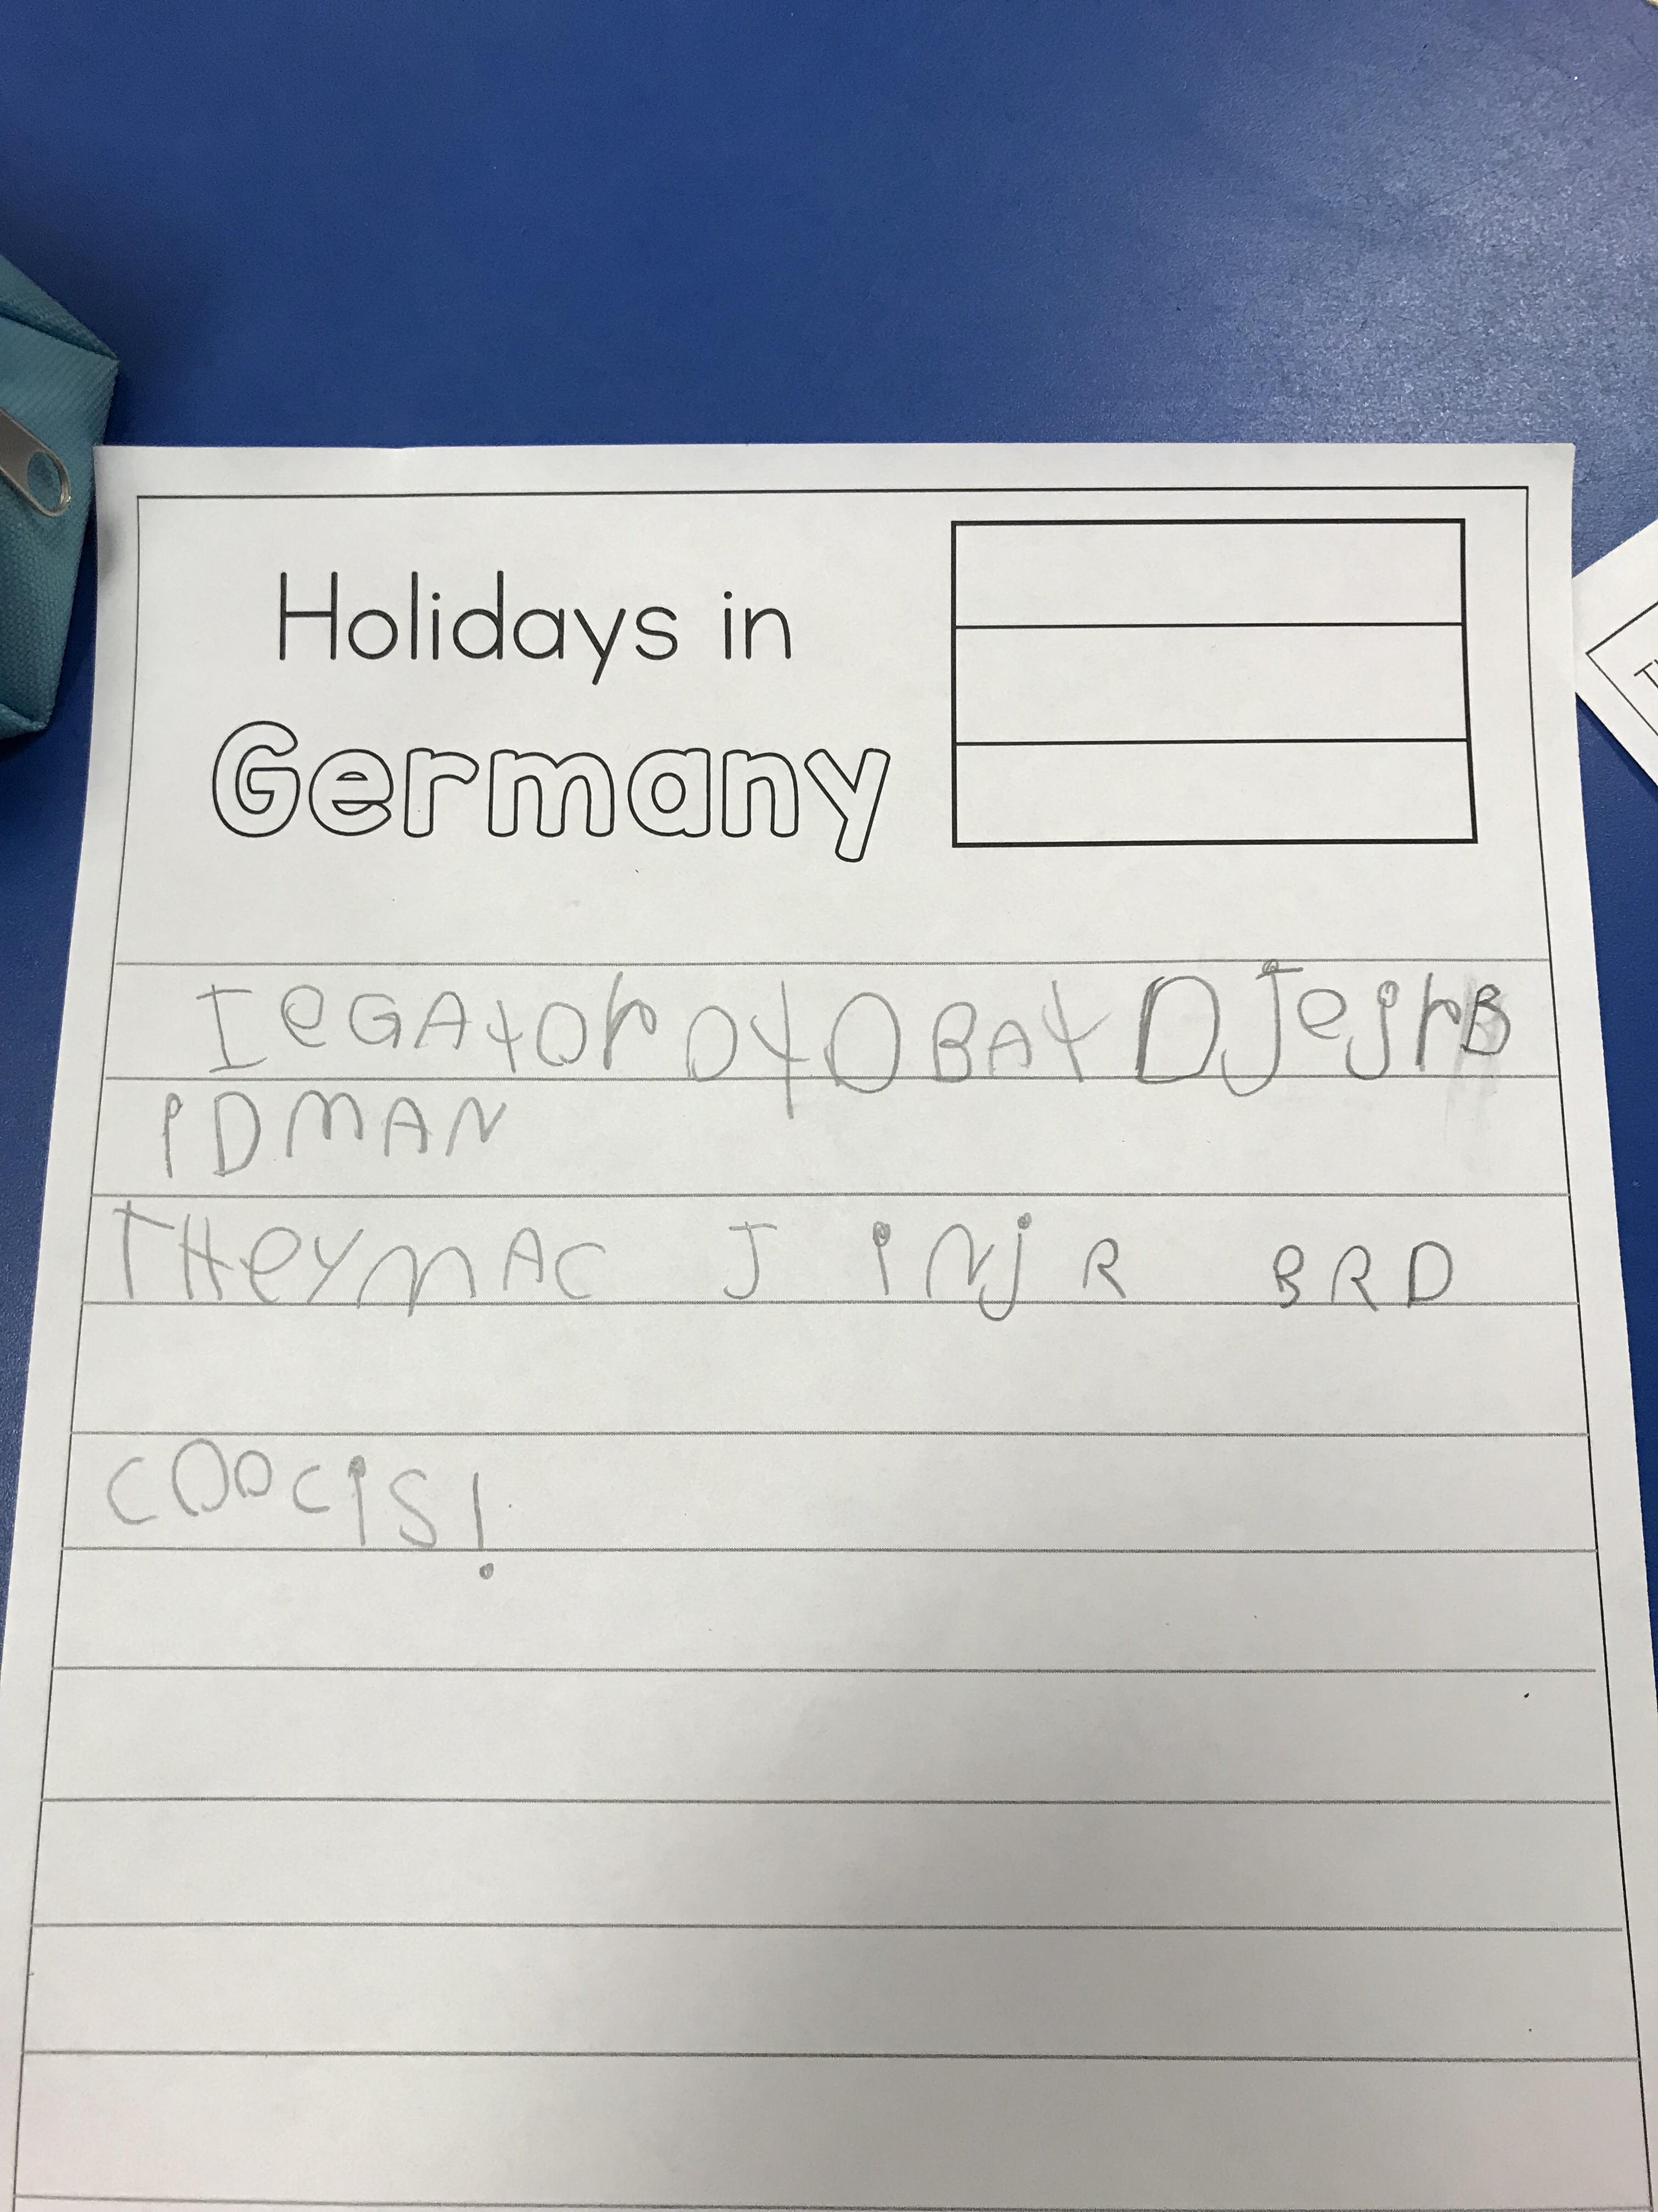 Holidays in
Germany
IeGAtOr Ot O BAt DJejrB
iDMAN
THeYMAC J iNjR BRD
COOCiS!